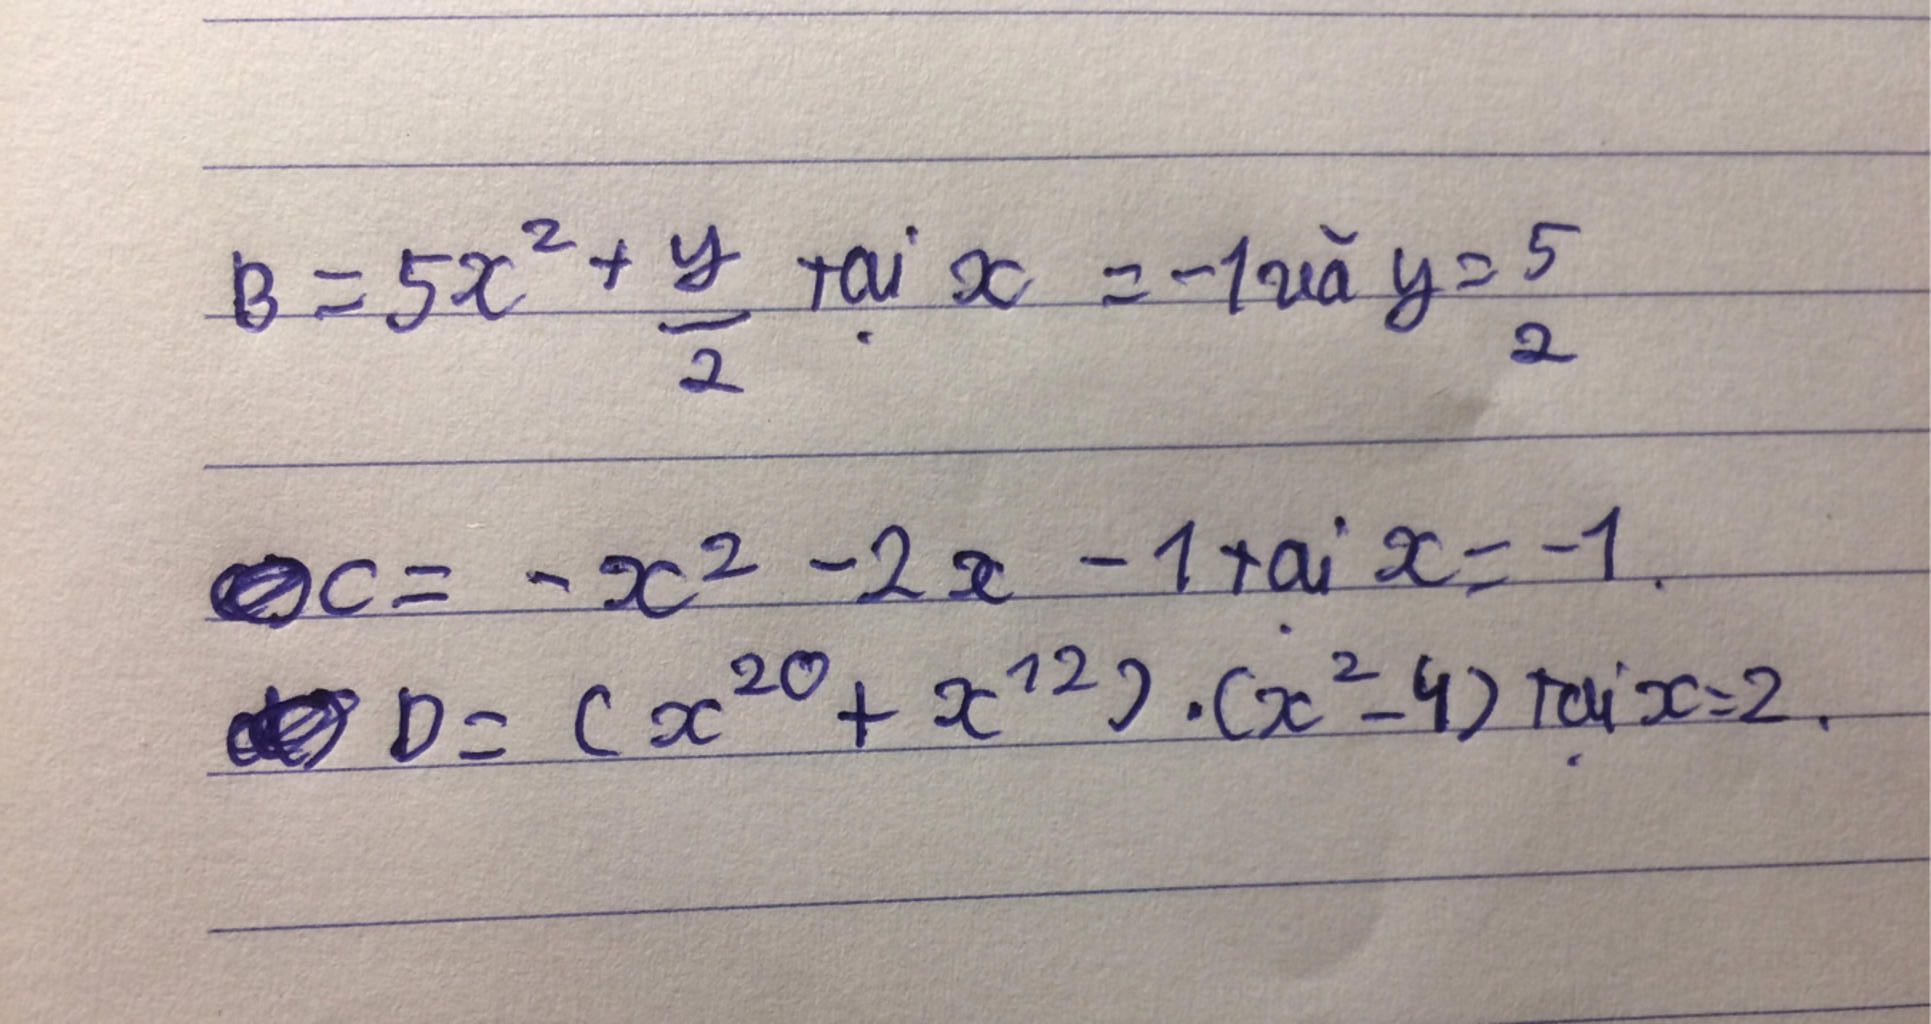 B = 5x² + y/2 tại x = -1 và y = 5/2
C = -x² - 2x - 1 tại x = -1.
D = (x²⁰ + x¹²).(x² - 4) tại x = 2.